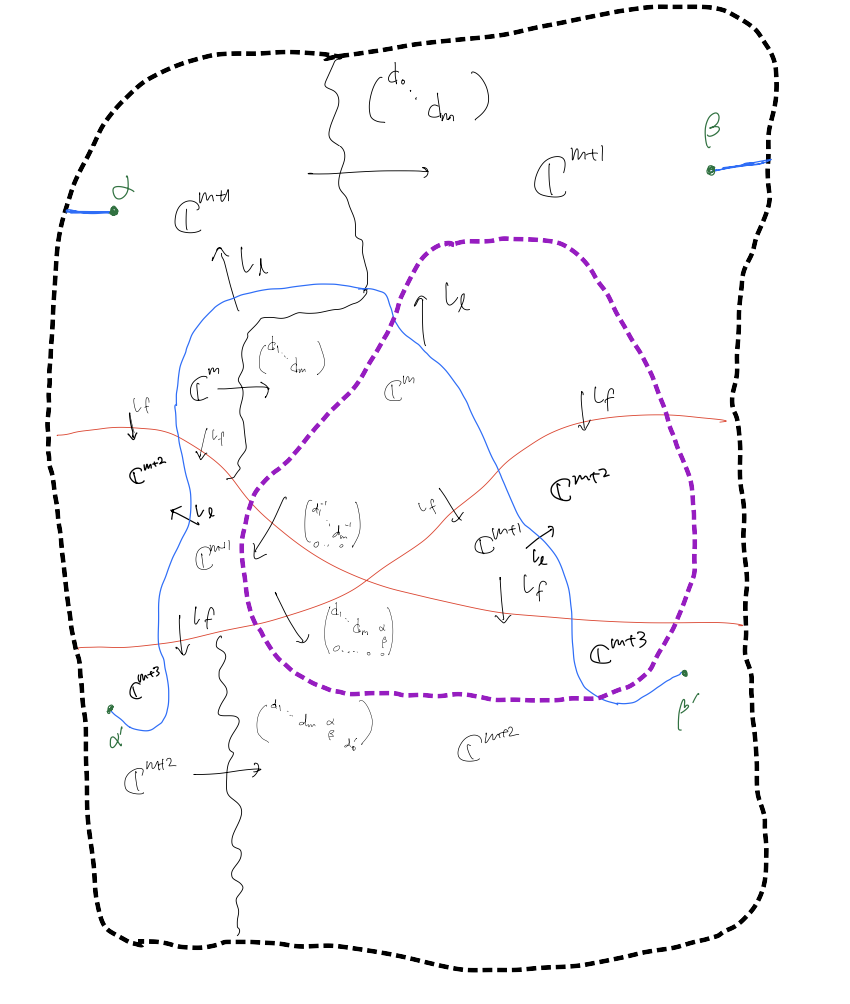 (d₀ ⋱ dₘ)
β
ℂᵐ⁺¹
α
ℂᵐ⁺¹
ι_ℓ
ι_ℓ
(d₁ ⋱ dₘ)
ℂᵐ
ℂᵐ
ι_f
ι_f
ι_f
ℂᵐ⁺²
ℂᵐ⁺²
ι_f
ι_ℓ
(d₁⁻¹ ⋱ dₘ⁻¹ 0 … 0)
ℂᵐ⁺¹
ℂᵐ⁺¹
ι_ℓ
ι_f
ι_f
(d₁ ⋱ dₘ α β 0 … 0 0)
ℂᵐ⁺³
ℂᵐ⁺³
α′
β′
(d₁ ⋱ dₘ α β d₀′)
ℂᵐ⁺²
ℂᵐ⁺²